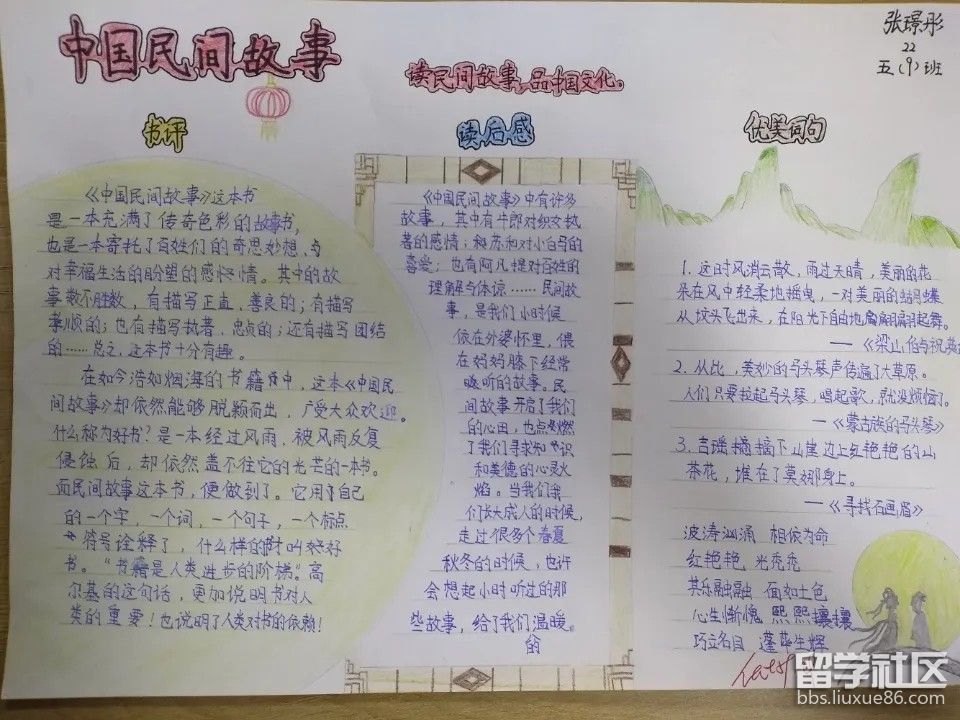 中国民间故事
读民间故事,品中国文化。
张璟彤
22
五(9)班
书评
《中国民间故事》这本书
是一本充满了传奇色彩的故事书,
也是一本寄托了百姓们的奇思妙想、与
对幸福生活的盼望的感怀情。其中的故
事数不胜数,有描写正直、善良的;有描写
孝顺的;也有描写执着、忠贞的;还有描写团结
的……总之,这本书十分有趣。
在如今浩如烟海的书籍中,这本《中国民
间故事》却依然能够脱颖而出,广受大众欢迎。
什么称为好书?是一本经过风雨,被风雨反复
侵蚀后,却依然盖不住它的光芒的一本书。
而民间故事这本书,便做到了。它用自己
的一个字,一个词,一个句子,一个标点
符号诠释了,什么样的才叫好
书。“书籍是人类进步的阶梯”高
尔基的这句话,更加说明书对人
类的重要!也说明了人类对书的依赖!
读后感
《中国民间故事》中有许多
故事,其中有牛郎对织女执
着的感情;和苏和对小白马的
喜爱;也有阿凡提对百姓的
理解与体谅……民间故
事,是我们小时候
依在外婆怀里,偎
在妈妈膝下经常
聆听的故事。民
间故事开启了我们
的心田,也点燃
了我们寻求知识
和美德的心灵火
焰。当我们
们长大成人的时候,
走过很多个春夏
秋冬的时候,也许
会想起小时听过的那
些故事,给了我们温暖。
的
优美词句
1. 这时风消云散,雨过天晴,美丽的花
朵在风中轻柔地摇曳,一对美丽的蝴蝶
从坟头飞出来,在阳光下自由地翩翩起舞。
——《梁山伯与祝英
2. 从此,美妙的马头琴声传遍了大草原。
人们只要拉起马头琴,唱起歌,就没烦恼了。
——《蒙古族的马头琴》
3. 吉瑶摘摘下山崖边上红艳艳的山
茶花,堆在了莫娜身上。
——《寻找石画眉》
波涛汹涌 相依为命
红艳艳 光秃秃
其乐融融 面如土色
心生惭愧 熙熙攘攘
巧立名目 蓬荜生辉
留学社区
bbs.liuxue86.com